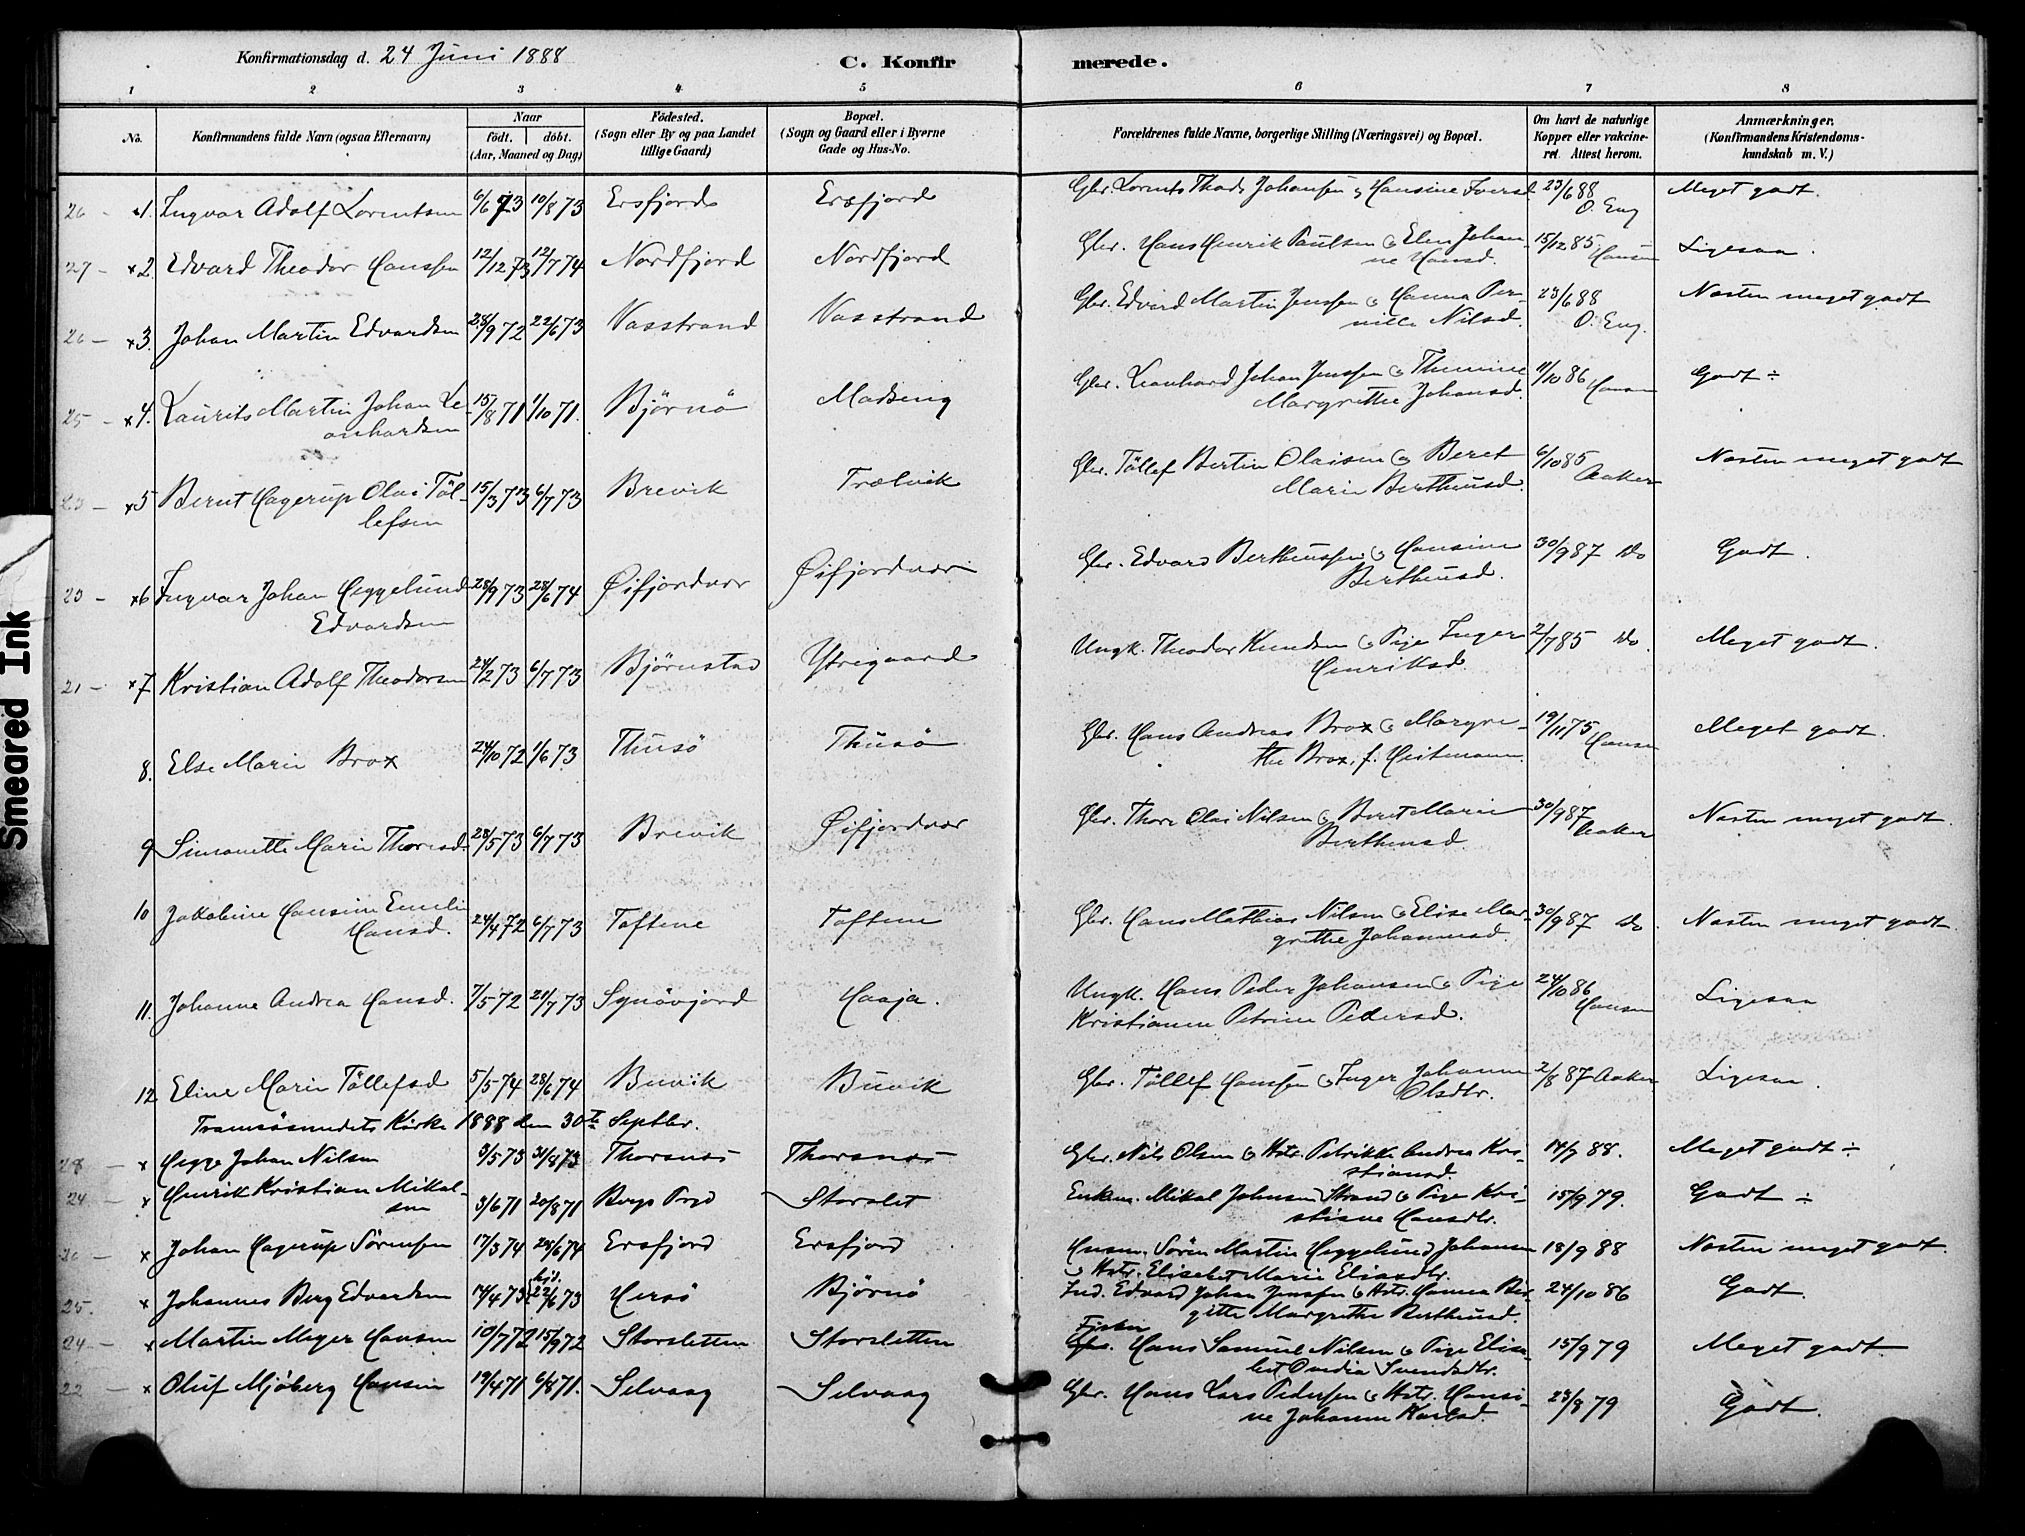 Konfirmationsdag d. 24 Juni 1888
C. Konfir merede.
1 2 3 4 5 6 7 8
No. Konfirmandens fulde Navn (ogsaa Efternavn) Naar födt. döbt. (Aar, Maaned og Dag) Födested. (Sogn eller By og paa Landet tillige Gaard) Bopæl. (Sogn og Gaard eller i Byerne Gade og Hus-No. Forældrenes fulde Navne, borgerlige Stilling (Næringsvei) og Bopæl. Om havt de naturlige Kopper eller vakcineret. Attest herom. Anmærkninger. (Konfirmandens Kristendomskundskab m. V.)
26 - 1. Ingvar Adolf Lorentsen 6/6 73 10/8 73 Ersfjord Ersfjord Gbr. Lorents Johansen og Hansine Iversd. 23/6 88 O. Eng Meget godt.
27 - x2. Edvard Theodor Hanssen 12/12 73 12/7 74 Nordfjord Nordfjord Gbr. Hans Henrik Paulsen o Elen Johanne Hansd. 15/12 85 Hansen Ligesaa.
26 - x3. Johan Martin Edvardsen 28/9 72 22/6 73 Vasstrand Vasstrand Gbr. Edvard Martin Jenssen o Hanna Pernille Nilsd. 23/6 88 O. Eng. Næsten meget godt
25 - x4. Laurits Martin Johan Leonhardsen 15/8 71 1/10 71. Bjørnø Madseng Gbr. Leonhard Johan Jenssen o Margrethe Johansd. 1/10 86 Hansen Godt ÷
23 - x5 Bernt Hagerup Olai Töllefsen 15/3 73 6/7 73 Brevik Trælvik Gbr. Töllef Bertin Olaisen o Beret Marie Bertheusd. 6/10 85 Aaker Næsten meget godt
23 - x6 Ingvar Johan Heggelund Edvardsen 28/9 73 28/6 74 Øifjordvær Øifjordvær Gbr. Edvard Bertheussen o Hansine Bertheusd. 30/9 87 Do Godt.
21 - x7 Kristian Adolf Theodorsen 24/2 73 6/7 73 Bjørnstad Ytregaard Ungk. Theodor Knudsen o Pige Inger Henriksd. 2/7 85 Do. Meget godt.
8. Else Marie Brox 24/10 72 1/6 73 Thusö Thusö Gbr. Hans Andreas Brox o Margrethe Brox, f. Heitmann. 19/11 75 Hansen Meget godt.
9 Simonette Marie Thoresd. 28/5 73 6/7 73 Brevik Øifjordvær Gbr. Thore Olai Nilsen o Beret Marie Bertheusd. 30/9 87 Aaker Næsten meget godt.
10 Jakobine Hansine Emelie Hansd. 24/4 72 6/7 73 Toftene Toftene Gbr. Hans Mathias Nilsen o Elise Margrethe Johannesd. 30/9 87 Do. Næsten meget godt
11. Johanne Andrea Hansd. 7/5 72 21/7 73 Haaja. Ungk. Hans Peder Johansen o Pige Kristianne Petrine Pedersd. 24/10 86 Hansen Ligesaa
12 Eline Marie Töllefsd 5/5 74 28/6 74 Buvik Buvik Gbr. Töllef Hanssen o Inger Johanne Olsdtr. 2/8 87 Aaker Ligesaa.
Tromsösundets Kirke 1888 den 30te Septbr.
28 - x Hegge Johan Nilsen 3/5 73 31/8 73 Thorsnes Thorsnes Gbr. Nils Olsen o Hstr. Petrikke Andrea Kristiansd. 14/9 88. Meget godt ÷
24 - x Henrik Kristian Mikalsen 3/6 71 20/8 71 Bergs Prgd Storslet Enkem. Mikal Johnsen Strand o Pige Kristine Hansdtr. 15/9 79. Godt ÷
26 - x Johan Hagerup Sörensen 17/3 74 28/6 74 Ersfjord Ersfjord Husm. Sören Martin Heggelund Johansen o Hstr. Elisebet Marie Eliasdtr. 18/9 88 Næsten meget godt.
25. x Johannes Berg Edvardsen 14/4 73 hjd. 22/6 73 Hersö Bjørnö Ind. Edvard Johan Jenssen o Hstr. Hanna Birgitte Margrethe Berthusd. 24/10 86 Godt.
24 - x Martin Meyer Hansen 10/7 72 15/9 72 Storsletten Storsletten Fisker Hans Samuel Nilsen o Pige Elisebet Ovedia Svendsdtr. 15/9 79 Meget godt.
22 - x Oluf Mjöberg Hansen 19/4 71 6/8 71. Selvaag Selvaag Gbr. Hans Lars Pedersen o Hstr. Hansine Johanne Karlsd. 23/8 79 Godt.
Smeared Ink